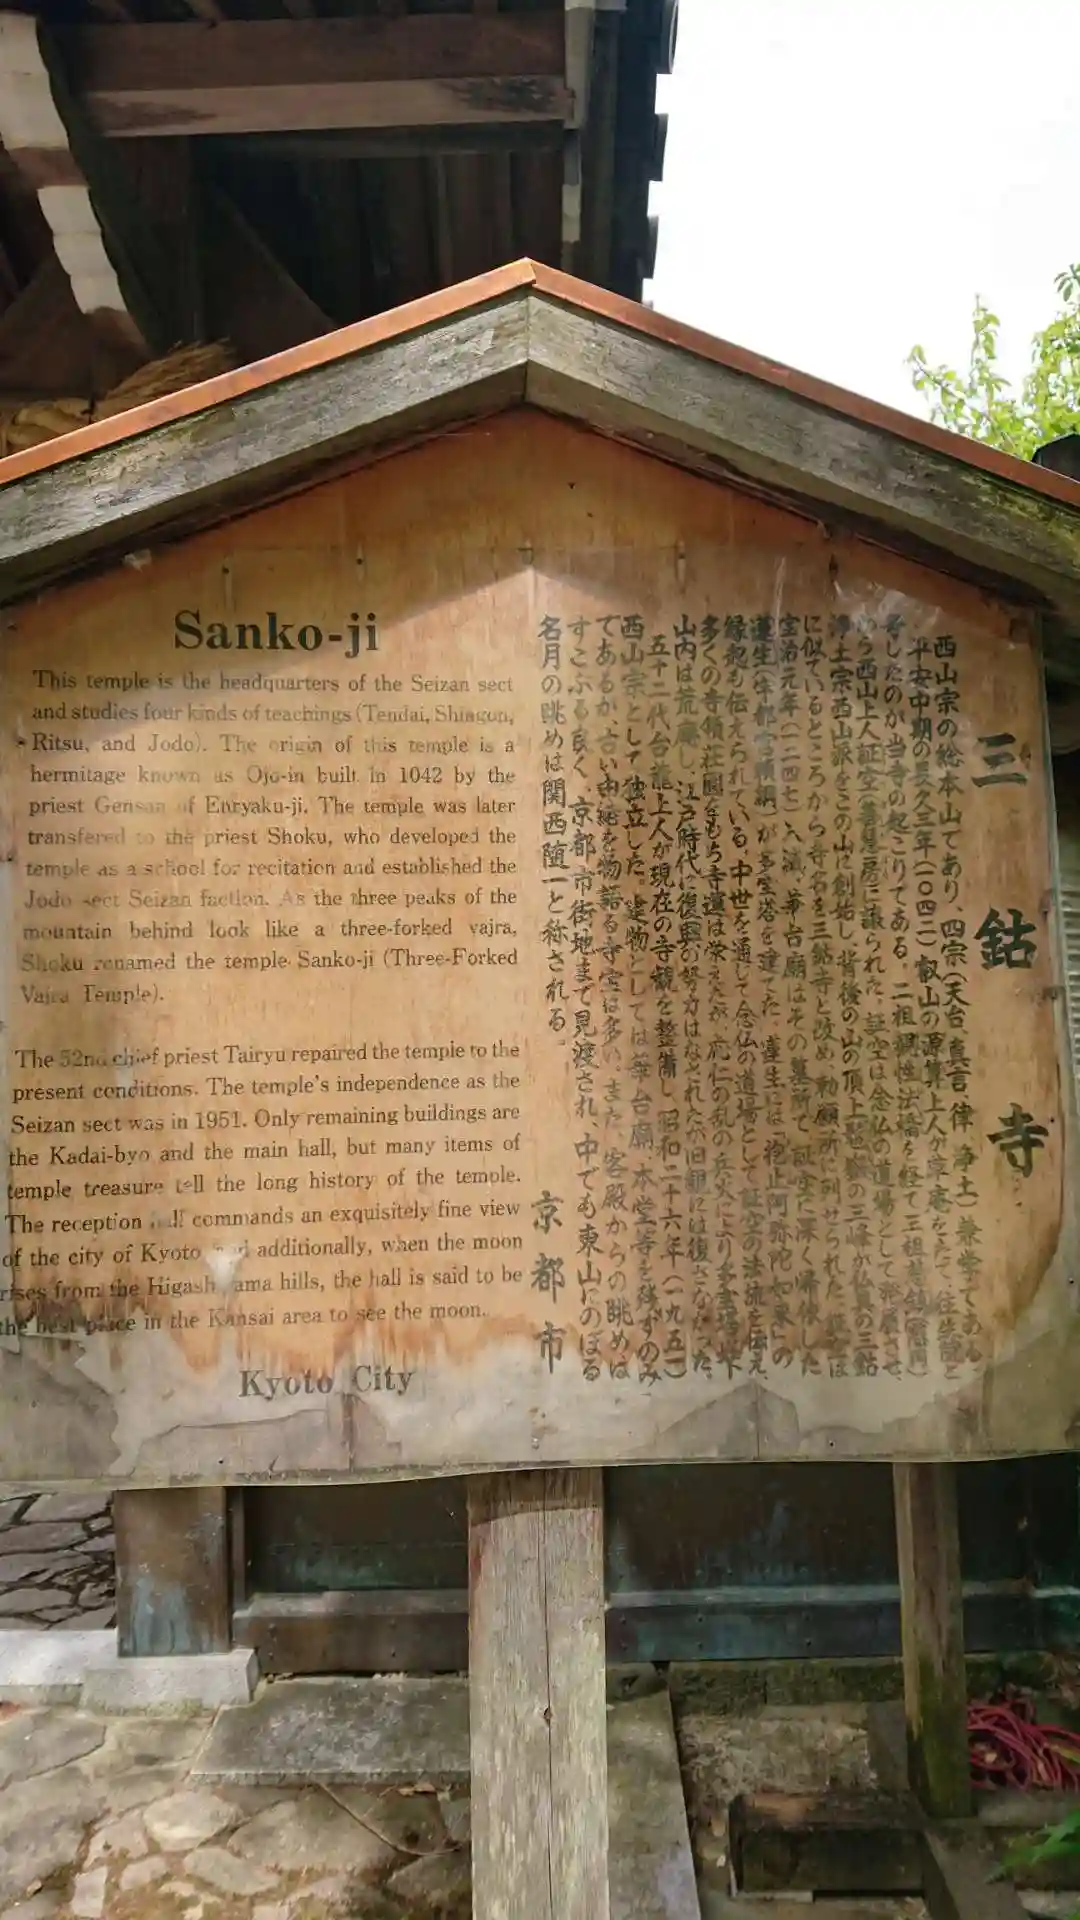 Sanko-ji
This temple is the headquarters of the Seizan sect
and studies four kinds of teachings (Tendai, Shingon,
Ritsu, and Jodo). The origin of this temple is a
hermitage known as Ojo-in built in 1042 by the
priest Gensan of Enryaku-ji. The temple was later
transfered to the priest Shoku, who developed the
temple as a school for recitation and established the
Jodo sect Seizan faction. As the three peaks of the
mountain behind look like a three-forked vajra,
Shoku renamed the temple Sanko-ji (Three-Forked
Vajra Temple).
The 52nd chief priest Tairyu repaired the temple to the
present conditions. The temple's independence as the
Seizan sect was in 1951. Only remaining buildings are
the Kadai-byo and the main hall, but many items of
temple treasure tell the long history of the temple.
The reception hall commands an exquisitely fine view
of the city of Kyoto and additionally, when the moon
rises from the Higashiyama hills, the hall is said to be
the best place in the Kansai area to see the moon.
Kyoto City
三鈷寺
西山宗の総本山であり、四宗(天台、真言、律、浄土)兼学である。
平安中期の長久三年(一〇四二)叡山の源算上人が草庵をたて、往生院と
号したのが当寺の起こりである。二祖観性法橋を経て三祖慈鎮(慈円)
から西山上人証空(善恵房)に譲られた。証空は念仏の道場として発展させ、
浄土宗西山派をこの山に創始し、背後の山の頂上の三峰が仏具の三鈷
に似ているところから寺名を三鈷寺と改め、勅願所に列せられた。
宝治元年(一二四七)入滅、華台廟はその墓所で、証空に深く帰依した
蓮生(宇都宮頼綱)が多宝塔を建てた。蓮生には「抱止阿弥陀如来」の
縁起も伝えられている。中世を通じて念仏の道場として証空の法流を伝え、
多くの寺領荘園をもち寺運は栄えたが、応仁の乱の兵火により多宝塔
山内は荒廃し、江戸時代に復興の努力はなされたが旧観には復さなかった。
五十二代台龍上人が現在の寺観を整備し、昭和二十六年(一九五一)
西山宗として独立した。建物としては華台廟、本堂等を残すのみ
であるが、古い由緒を物語る寺宝は多い。また、客殿からの眺めは
すこぶる良く、京都市街地まで見渡され、中でも東山にのぼる
名月の眺めは関西随一と称される。
京都市